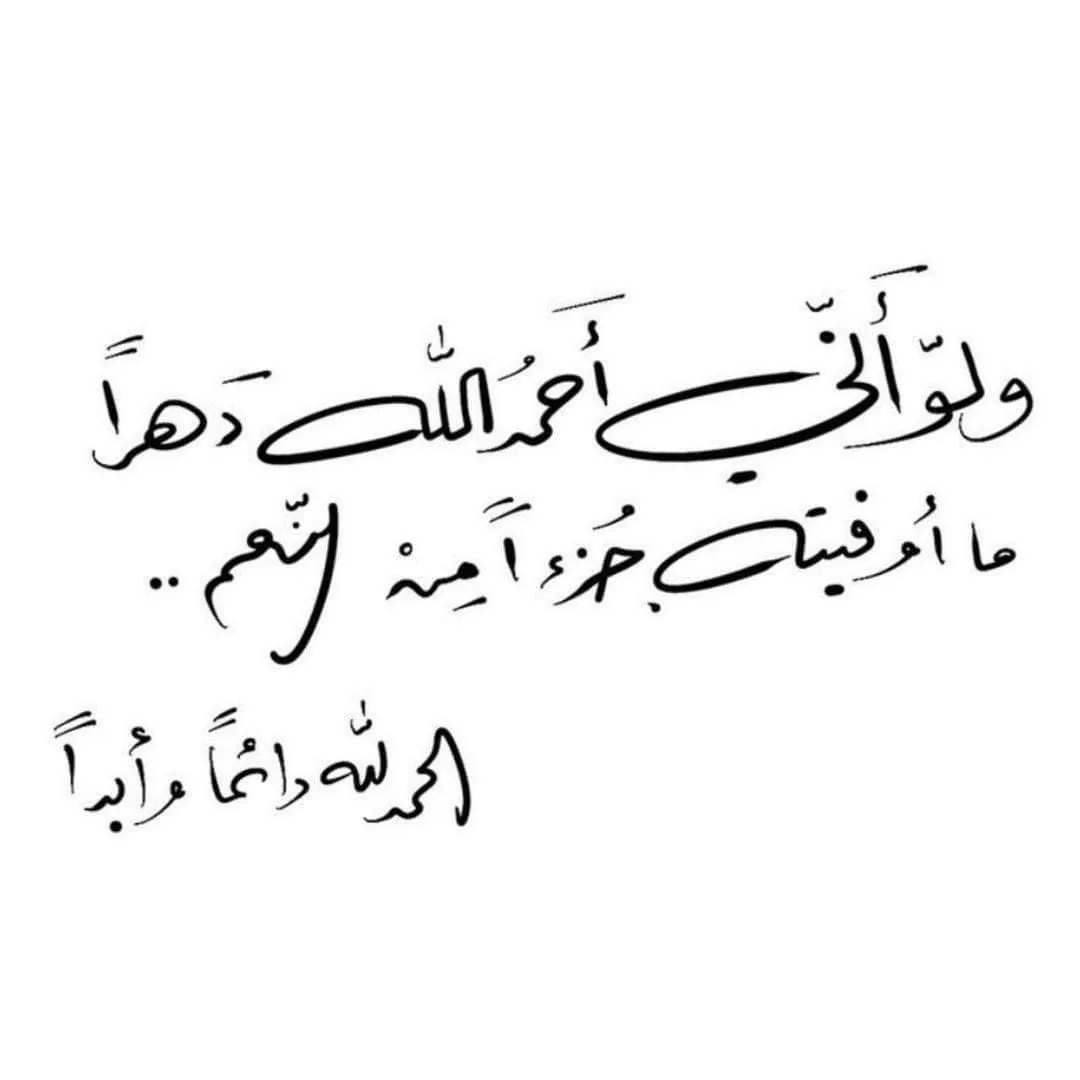 ولوّ أَنّي أَحمدُ اللّٰه دَهراً
ما أوفيته جُزءاً مِنْ النّعم ..
الحمد للّٰه دائماً وأبداً